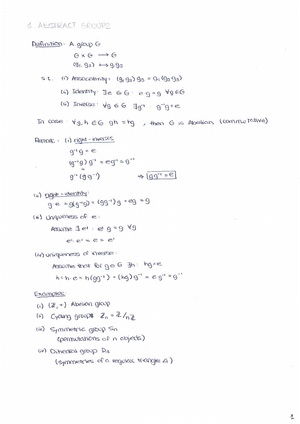 1. ABSTRACT GROUPS
Definition: A group G
G × G → G
(g₁, g₂) ↦ g₁g₂
s.t. (i) Associativity: (g₁g₂)g₃ = g₁(g₂g₃)
(ii) Identity: ∃e ∈ G : e g = g ∀g∈G
(iii) Inverse: ∀g ∈ G ∃g⁻¹ g⁻¹g = e
In case ∀g,h ∈ G gh = hg, then G is Abelian (commutative)
(i) right-inverse:
g⁻¹g = e
(g⁻¹g)g⁻¹ = eg⁻¹ = g⁻¹
g⁻¹(gg⁻¹) ⇒ gg⁻¹ = e
(ii) right-identity:
g·e = g(g⁻¹g) = (gg⁻¹)g = eg = g
(iii) Uniqueness of e:
Assume ∃e' : e'g = g ∀g
e'·e = e = e'
(iv) uniqueness of inverse:
Assume that for g∈G ∃h: hg = e
h = h·e = h(gg⁻¹) = (hg)g⁻¹ = eg⁻¹ = g⁻¹
Examples:
(i) (ℤ, +) Abelian group
(ii) groups ℤₙ = ℤ/nℤ
(iii) Symmetric group Sₙ
(permutations of n objects)
(iv) Dihedral group D₃
(symmetries of a regular triangle Δ)
1